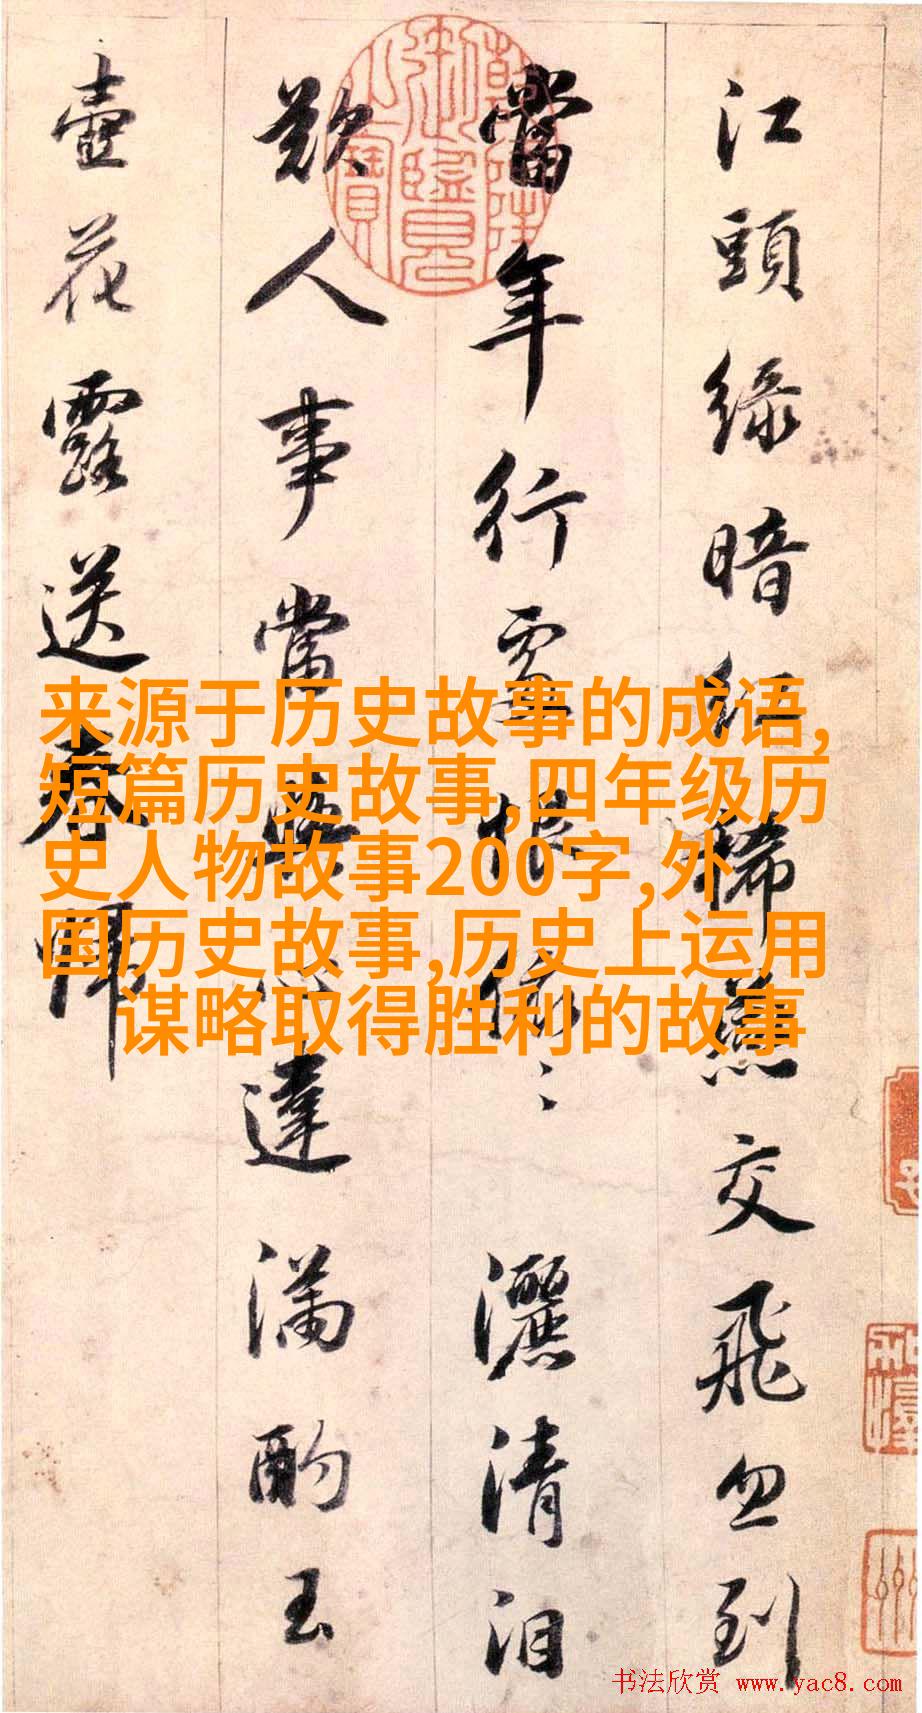 江頭綠暗紅稀燕交飛忽到
當年行處恨依〻灑清泪
歎人事常與心違滿酌玉
壺花露送春歸
乾隆御覽之寶
来源于历史故事的成语,
短篇历史故事,四年级历
史人物故事200字,外
国历史故事,历史上运用
谋略取得胜利的故事
书法欣赏 www.yac8.com